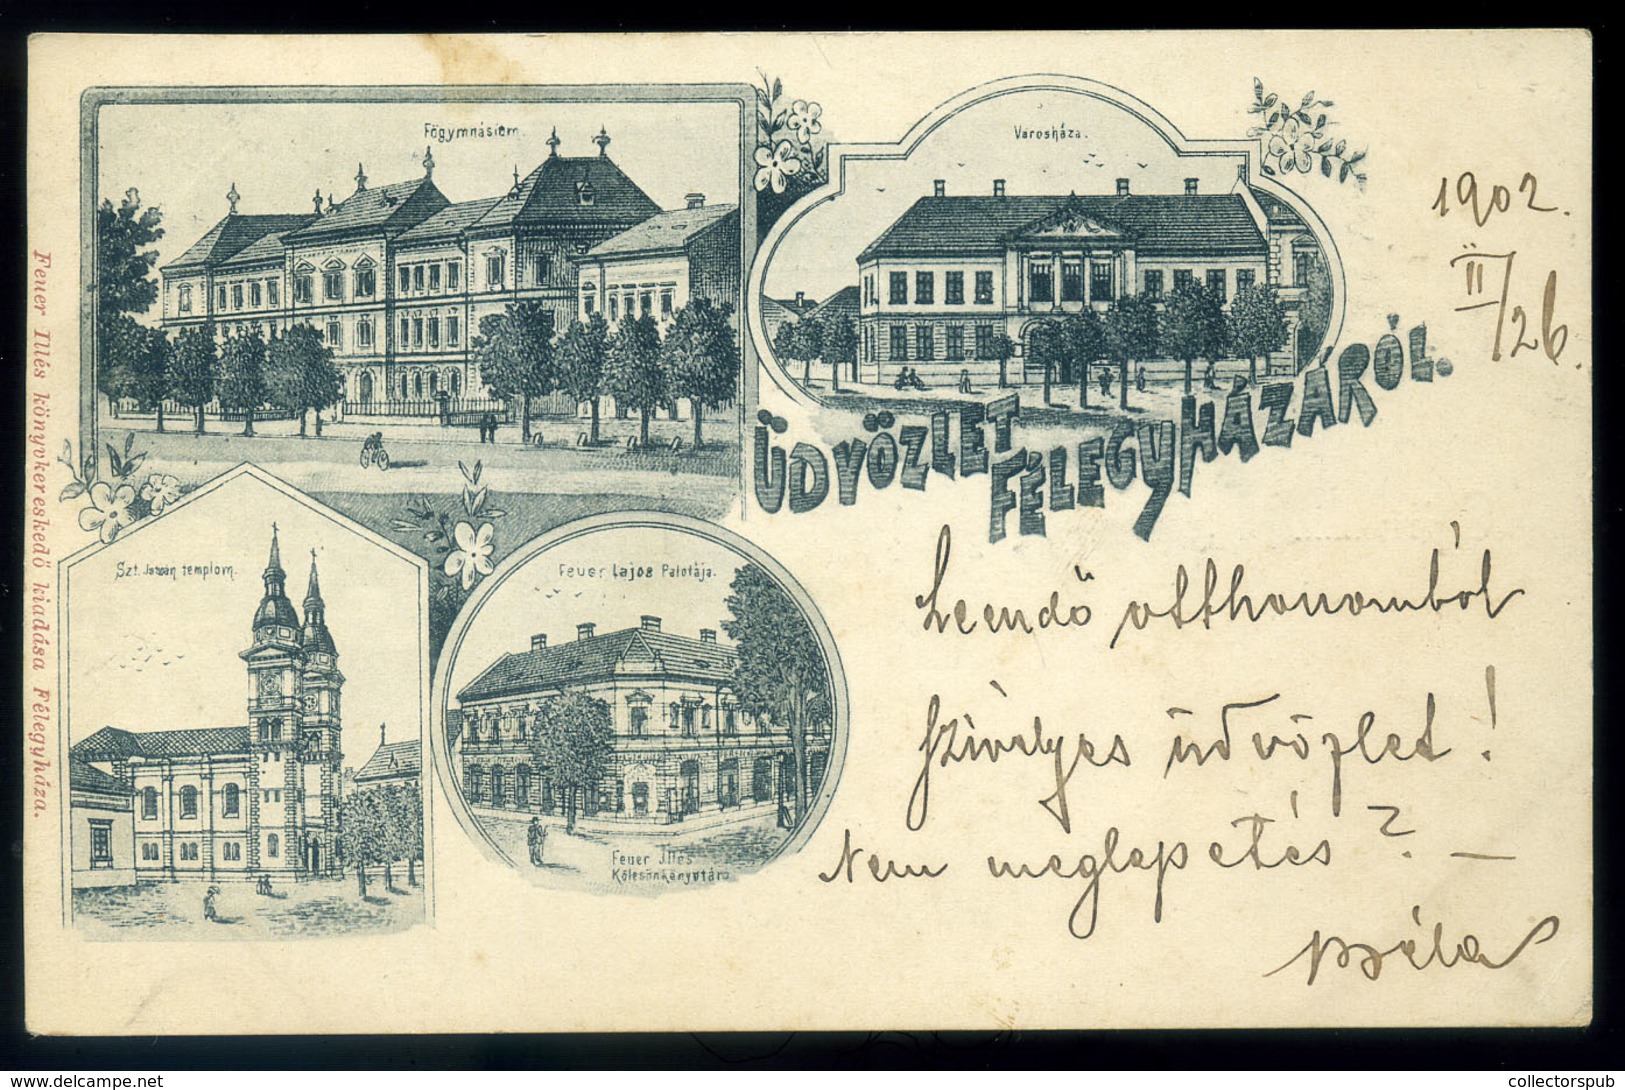 Főgymnásium.
Városháza.
1902.
II/26.
ÜDVÖZLET
FÉLEGYHÁZÁRÓL.
Szt. István templom.
Feuer Lajos Palotája.
Feuer Illés
Kölcsönkönyvtára
Leendő otthonomból
szívélyes üdvözlet!
Nem meglepetés? —
Béla
Feuer Illés könyvkereskedő kiadása Félegyháza.
collectorspub